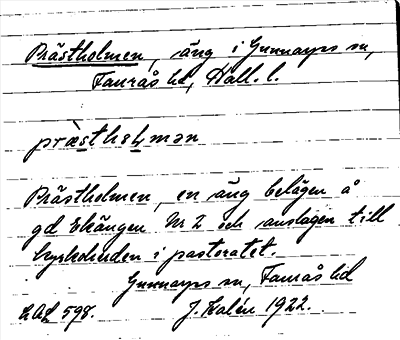 Prästholmen, äng i Gunnarps sn,
Faurås hd, Hall. l.
præ̀sthɵɫmən
Prästholmen, en äng belägen å
gd Ekängen Nr 2 och anslagen till
kyrkoherden i pastoratet.
Gunnarps sn, Faurås hd
J. Kalén 1922.
598.